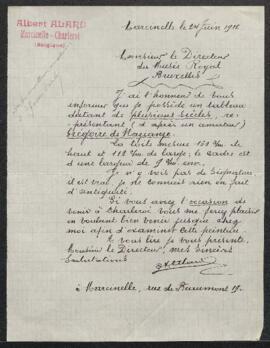 Albert ALARD
Marcinelle - Charleroi
(Belgique)
Marcinelle le 24 Juin 1912
Monsieur le Directeur
du Musée Royal
Bruxelles
J'ai l'honneur de vous
informer que je possède un tableau
datant de plusieurs siècles, re-
présentant (d'après un amateur)
Grégoire de Nazianze.
La toile mesure 150 c/m de
haut et 112 c/m de large; le cadre est
d'une largeur de 9 c/m env.
Je n'y vois pas de signature
il est vrai, je ne connais rien en fait
d'antiquité.
Si vous avez l'occasion de
venir à Charleroi vous me ferez plaisir
en voulant bien venir jusque chez
moi afin d'examiner cette peinture.
Je vous prie
Monsieur le Directeur, mes sincères
Salutations
à Marcinelle, rue de Beaumont 19.